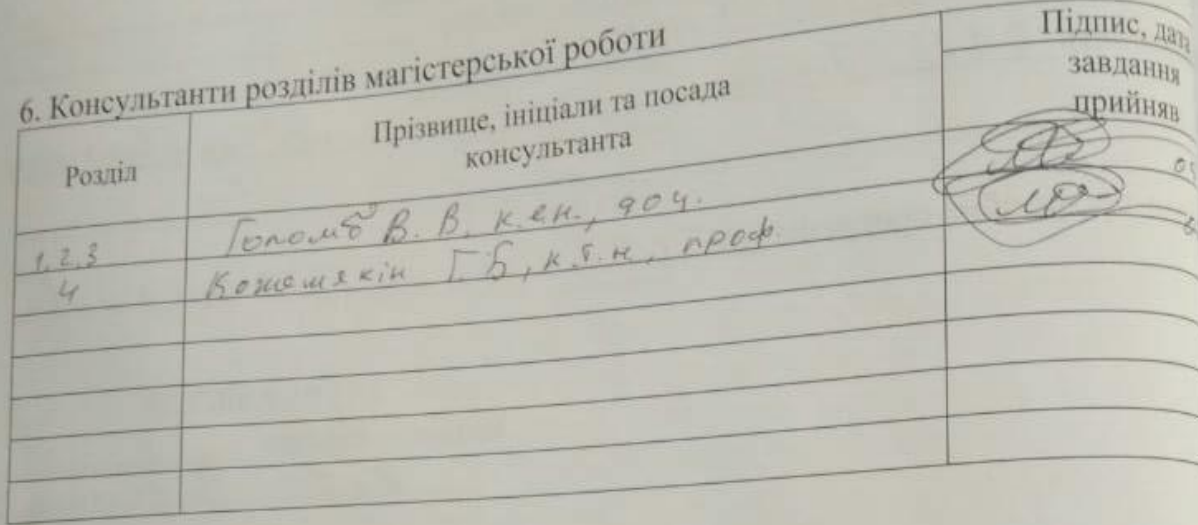 6. Консультанти розділів магістерської роботи
Розділ
Прізвище, ініціали та посада
консультанта
Підпис, дата
завдання
прийняв
1,2,3 Голомб В. В. к.е.н., доц.
4 Кожемякін Г.Б, к.т.н, проф.